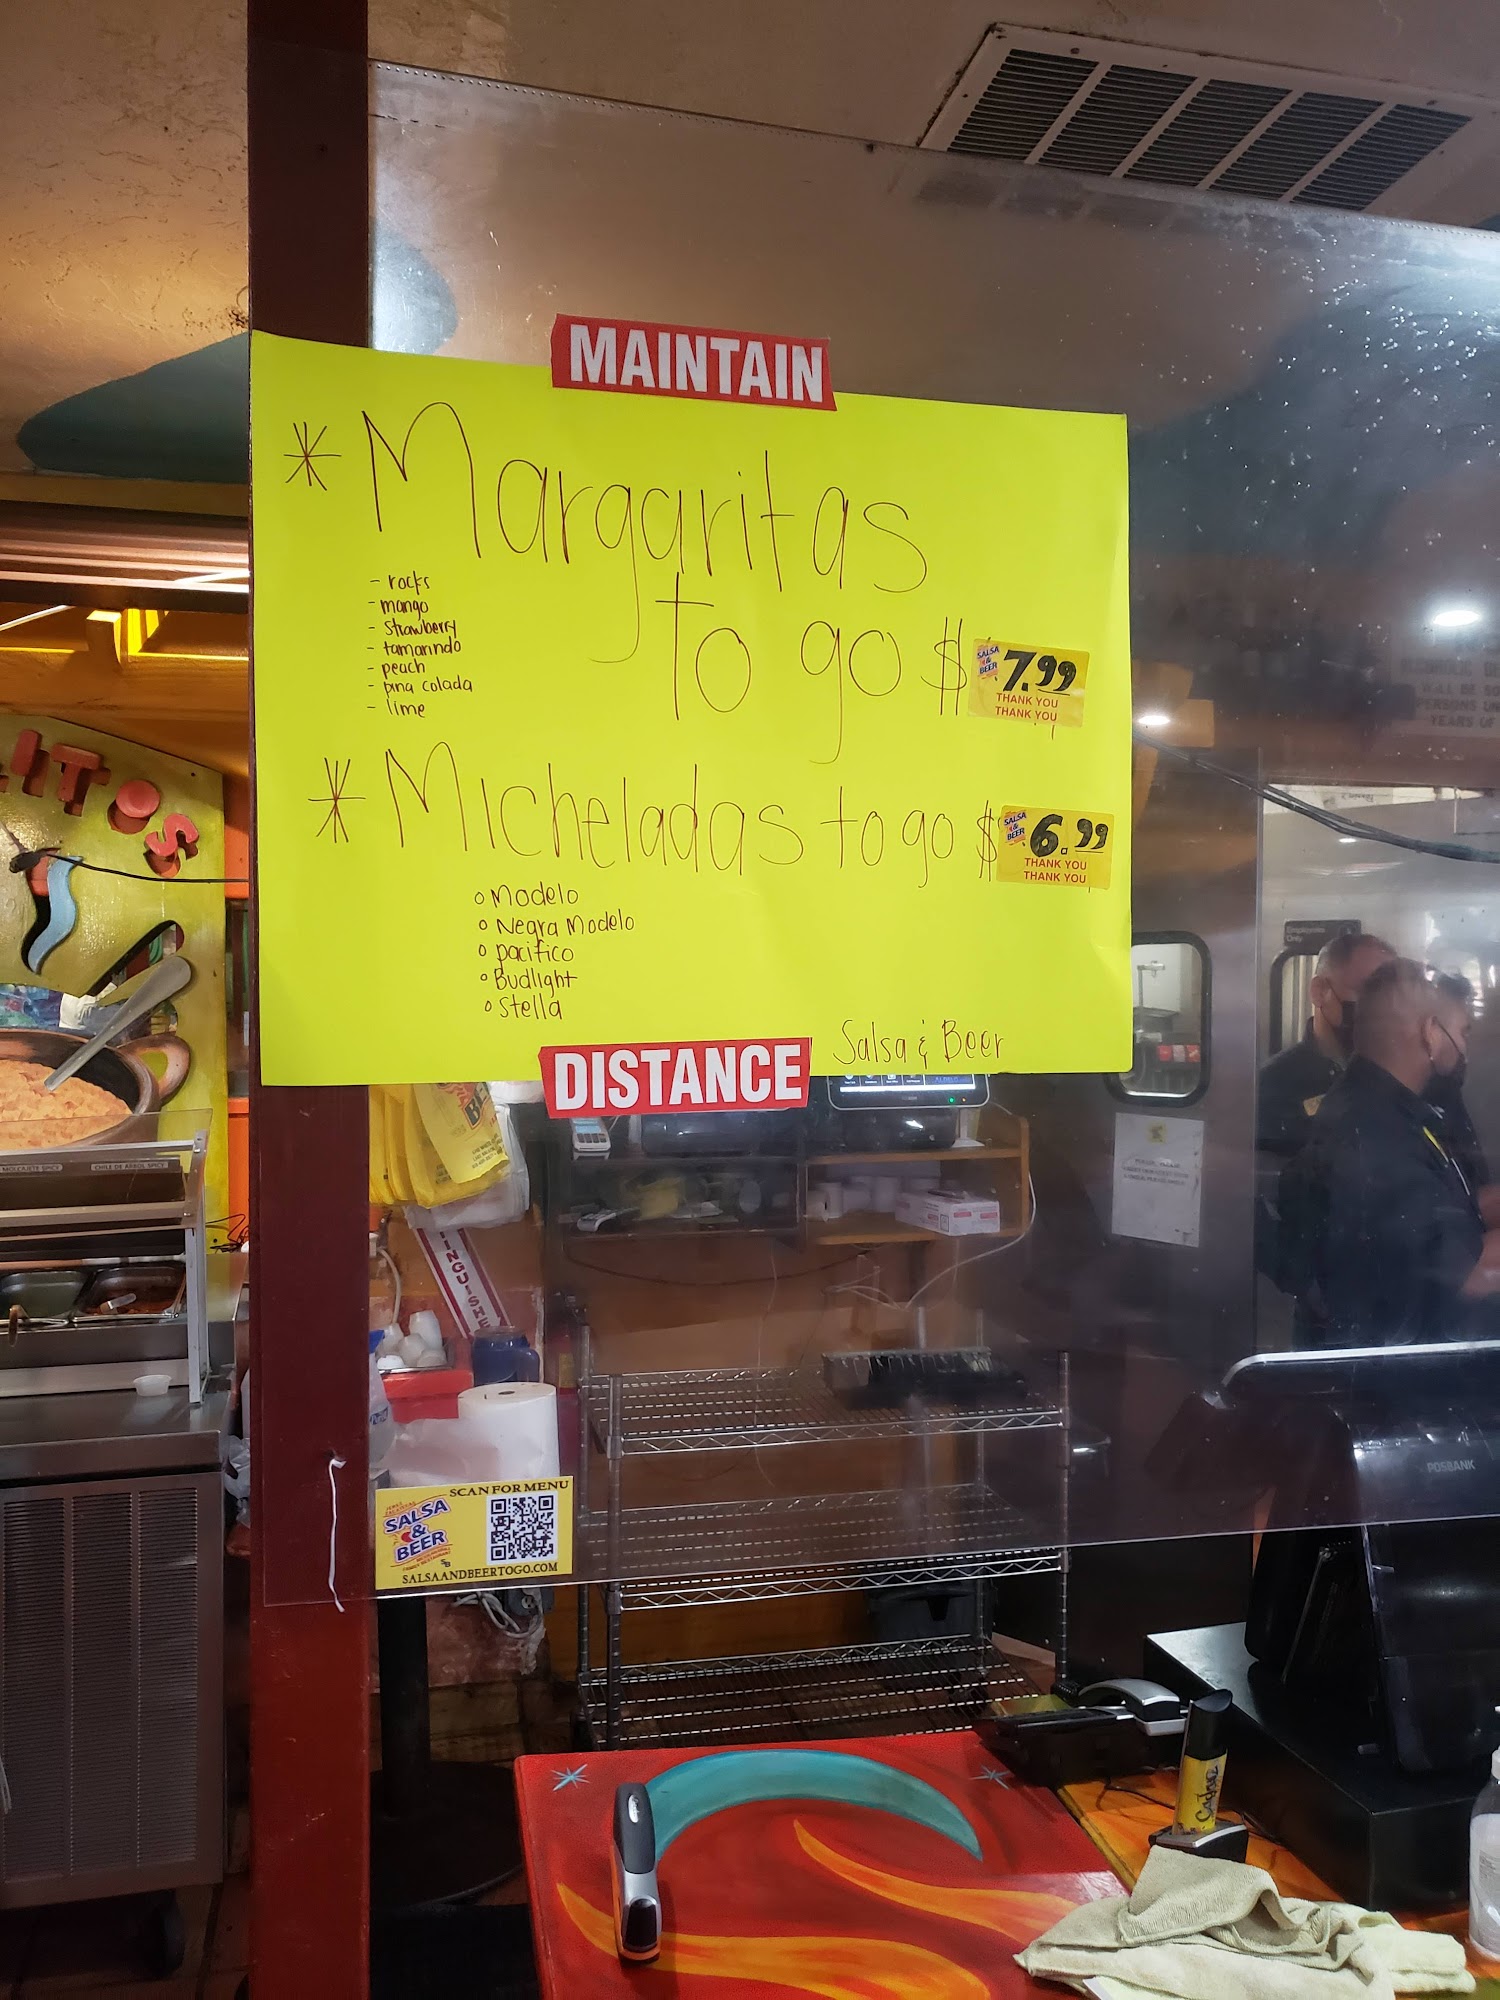 MAINTAIN
* Margaritas
- rocks
- mango
- strawberry
- tamarindo
- peach
- pina colada
- lime
to go $
SALSA & BEER 7.99
THANK YOU
THANK YOU
* Micheladas to go $
SALSA & BEER 6.99
THANK YOU
THANK YOU
o Modelo
o Negra Modelo
o pacifico
o Budlight
o Stella
Salsa & Beer
DISTANCE
ITOS
Employees
Only
MOLCAJETE SPICY
CHILE DE ARBOL SPICY
SCAN FOR MENU
SALSA
&
BEER
SALSAANDBEERTOGO.COM
POSBANK